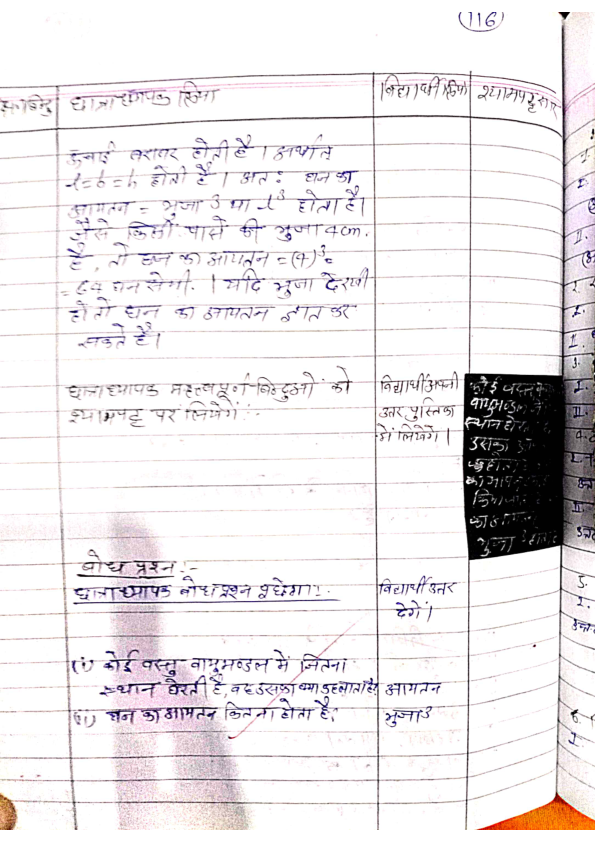 (116)
छात्राध्यापक क्रिया
विद्यार्थी क्रिया
श्यामपट्ट सार
ऊंचाई बराबर होती है। अर्थात
l=b=h होती है। अतः घन का
आयतन = भुजा3 या l3 होता है।
जैसे किसी पासे की भुजा 4cm.
है, तो इस का आयतन =(4)3=
=64 घन सेमी. । यदि भुजा दे रखी
हो तो घन का आयतन ज्ञात कर
सकते है।
छात्राध्यापक महत्वपूर्ण बिन्दुओं को
श्यामपट्ट पर लिखेगें :-
विद्यार्थी अपनी
उत्तर पुस्तिका
में लिखेगें।
कोई
वायुमण्डल में
स्थान
उसका
का आयतन
भुजा3
बोध प्रश्न :-
छात्राध्यापक बोध प्रश्न पूछेगा:-
विद्यार्थी उत्तर
देगें।
(i) कोई वस्तु वायुमण्डल में जितना
स्थान घेरती है, वह उसका क्या कहलाता है? आयतन
(ii) घन का आयतन कितना होता है? भुजा3